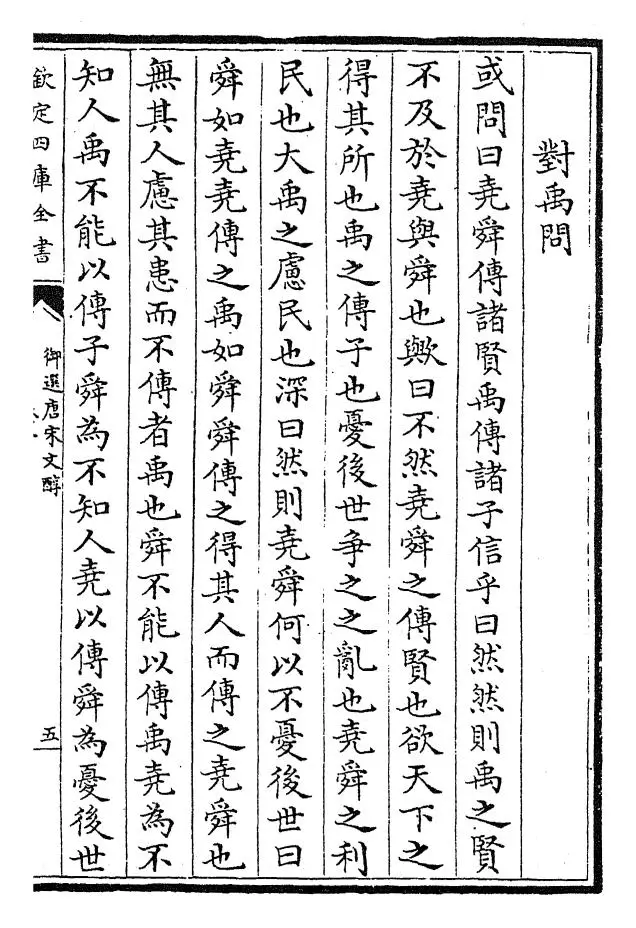 對禹問
或問曰堯舜傳諸賢禹傳諸子信乎曰然然則禹之賢
不及於堯與舜也歟曰不然堯舜之傳賢也欲天下之
得其所也禹之傳子也憂後世爭之之亂也堯舜之利
民也大禹之慮民也深曰然則堯舜何以不憂後世曰
舜如堯堯傳之禹如舜舜傳之得其人而傳之堯舜也
無其人慮其患而不傳者禹也舜不能以傳禹堯為不
知人禹不能以傳子舜為不知人堯以傳舜為憂後世
欽定四庫全書
御選唐宋文醇
五